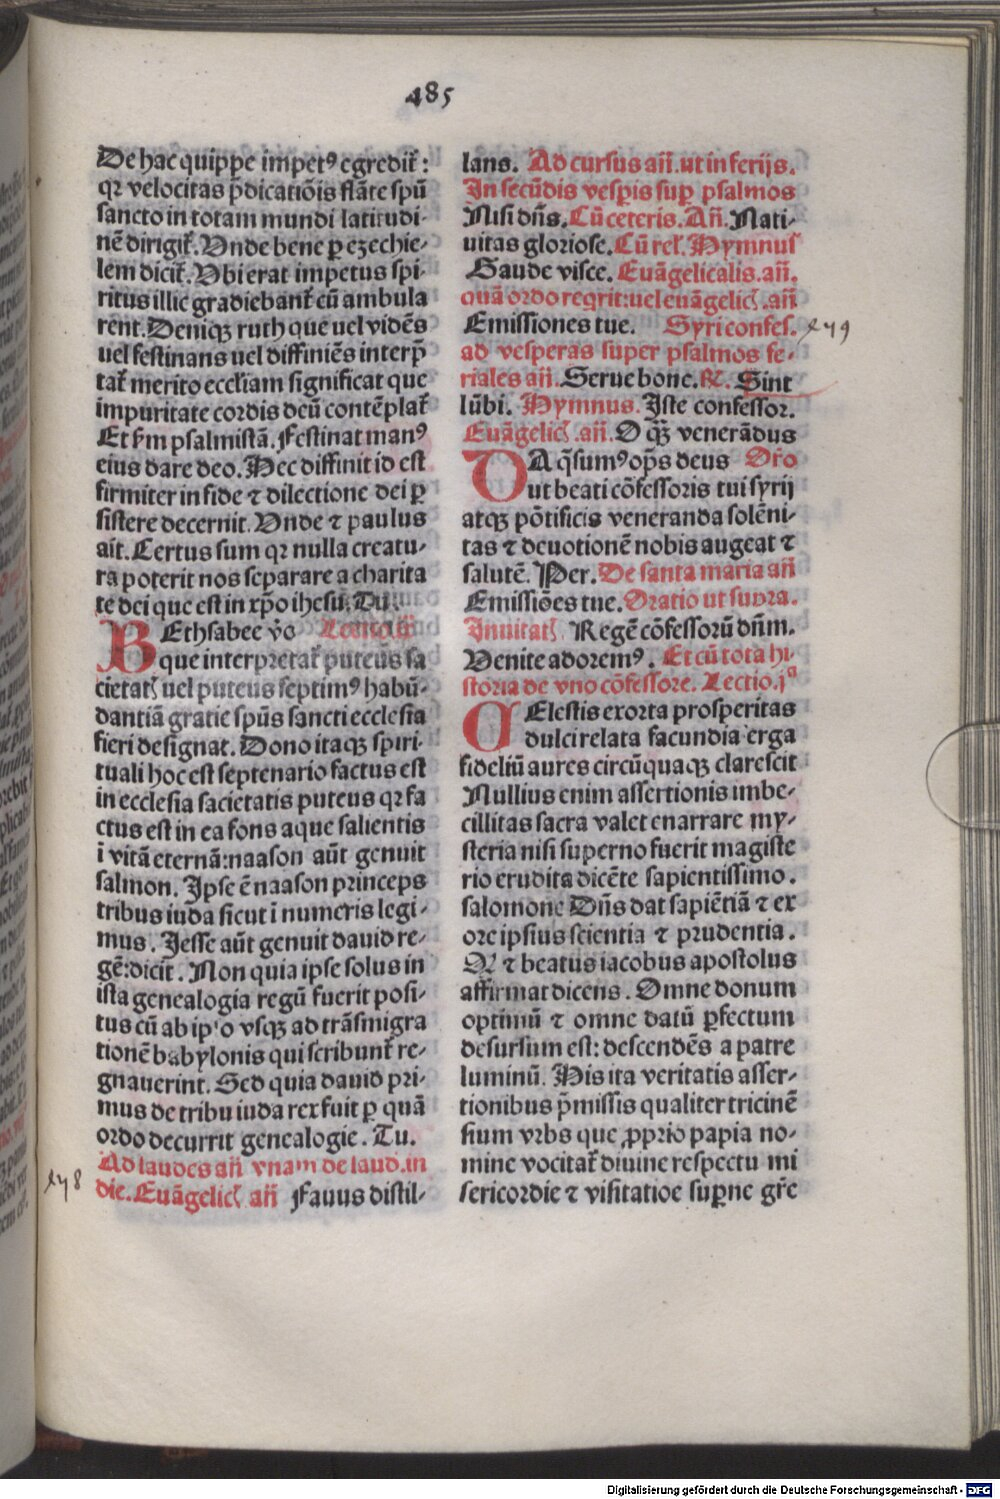 485
De hac quippe impetꝰ egredit̃:
qꝛ velocitas p̃dicatiõis flãte spũ
sancto in totam mundi latitudi-
nẽ dirigit̃. Vnde bene ꝑ ezechie-
lem dicit̃. Vbi erat impetus spi-
ritus illic gradiebant̃ cũ ambula
rent. Deniqꝫ ruth que uel vidẽs
uel festinans uel diffiniẽs interp̃
tat̃ merito eccl̃iam significat que
impuritate cordis deũ contẽplat̃
Et ẜm psalmistã. Festinat manꝰ
eius dare deo. Hec diffinit id est
firmiter in fide ⁊ dilectione dei ꝑ
sistere decernit. Vnde ⁊ paulus
ait. Certus sum qꝛ nulla creatu-
ra poterit nos separare a charita
te dei que est in xp̃o ihesu. Tu.
BEthsabee v̊o Lectio.iij.
que interpretat̃ puteus sa
cietatꝭ uel puteus septimꝰ habũ-
dantiã gratie spũs sancti ecclesia
fieri designat. Dono itaqꝫ spiri-
tuali hoc est septenario factus est
in ecclesia sacietatis puteus qꝛ fa
ctus est in ea fons aque salientis
ĩ vitã eternã: naason aũt genuit
salmon. Ipse ẽ naason princeps
tribus iuda sicut ĩ numeris legi-
mus. Iesse aũt genuit dauid re-
gẽ: dicit̃. Non quia ipse solus in
ista genealogia regũ fuerit posi-
tus cũ ab ip'o vsqꝫ ad trãsmigra
tionẽ babylonis qui scribunt̃ re-
gnauerint. Sed quia dauid pri-
mus de tribu iuda rex fuit ꝑ quã
ordo decurrit genealogie. Tu.
Ad laudes añ vnam de laud. in
die. Euãgelicꝭ añ Fauus distil-
ley 8
lans. Ad cursus añ. ut in ferijs.
In secũdis vesꝑis suꝑ psalmos
Nisi dñs. Cũ ceteris. Añ. Nati-
uitas gloriose. Cũ rel̃. Hymnus
Gaude visce. Euãgelicalis. añ.
quã ordo reqrit: uel euãgelicꝭ. añ
Emissiones tue. Syri confes.
ley 9
ad vesperas super psalmos fe-
riales añ. Serue bone. ℟. Sint
lũbi. Hymnus. Iste confessor.
Euãgelicꝭ. añ. O qꝫ venerãdus
DA q̃sumꝰ op̃s deus Or̃o
ut beati cõfessoris tui syrij
atqꝫ põtificis veneranda solẽni-
tas ⁊ deuotionẽ nobis augeat ⁊
salutẽ. Per. De santa maria añ
Emissiões tue. Oratio ut supra.
Inuitatꝭ Regẽ cõfessorũ dñm.
Venite adoremꝰ. Et cũ tota hi-
storia de vno cõfessore. Lectio.jª
CElestis exorta prosperitas
dulci relata facundia erga
fideliũ aures circũquaqꝫ clarescit
Nullius enim assertionis imbe-
cillitas sacra valet enarrare my-
steria nisi superno fuerit magiste
rio erudita dicẽte sapientissimo.
salomone Dñs dat sapiẽtiã ⁊ ex
ore ipsius scientia ⁊ prudentia.
Qꝛ ⁊ beatus iacobus apostolus
affirmat dicens. Omne donum
optimũ ⁊ omne datũ ꝑfectum
desursum est: descendẽs a patre
luminũ. His ita veritatis asser-
tionibus p̃missis qualiter tricinẽ
sium vrbs que ꝓprio papia no-
mine vocitat̃ diuine respectu mi
sericordie ⁊ visitatiõe suꝑne gr̃e
Digitalisierung gefördert durch die Deutsche Forschungsgemeinschaft - DFG